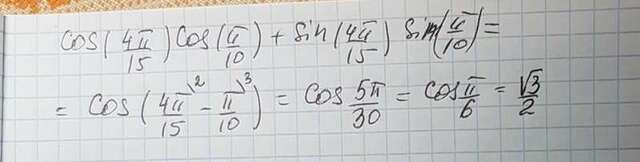 cos(4π/15)cos(π/10) + sin(4π/15) sin(π/10) =
= cos(4π/15\2 - π/10\3) = cos 5π/30 = cos π/6 = √3/2